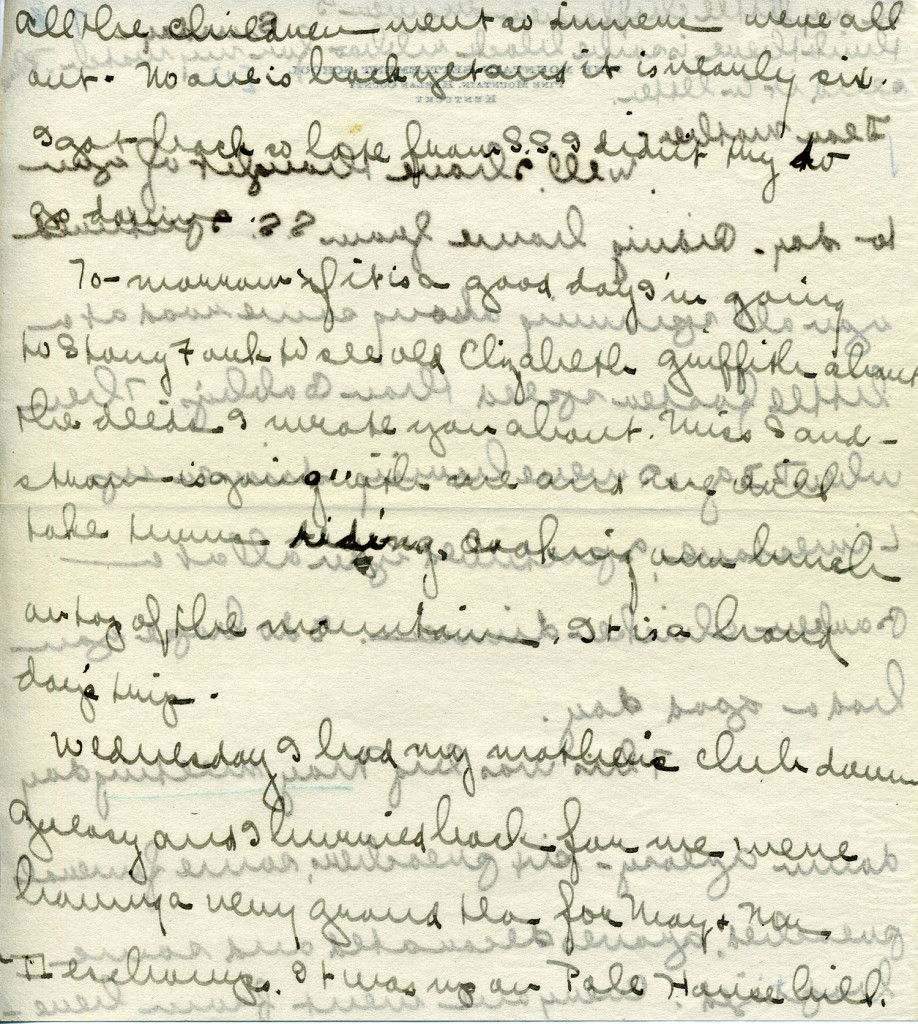 all the children went to dinner - were all
out. No one is back yet and it is nearly six.
I got back so late from S.S. I didn't try to
go
To-morrow if it is a good day I'm going
to Stony Fork to see old Elizabeth Griffith about
the deeds I wrote you about. Miss Sand-
strom is going with me and we will
take turns riding, cooking our lunch
on top of the mountain. It is a hard
day's trip.
Wednesday I had my mother's club down
Greasy and I hurried back for we were
having a very grand tea for May & Nan
It was up on Pole House hill.